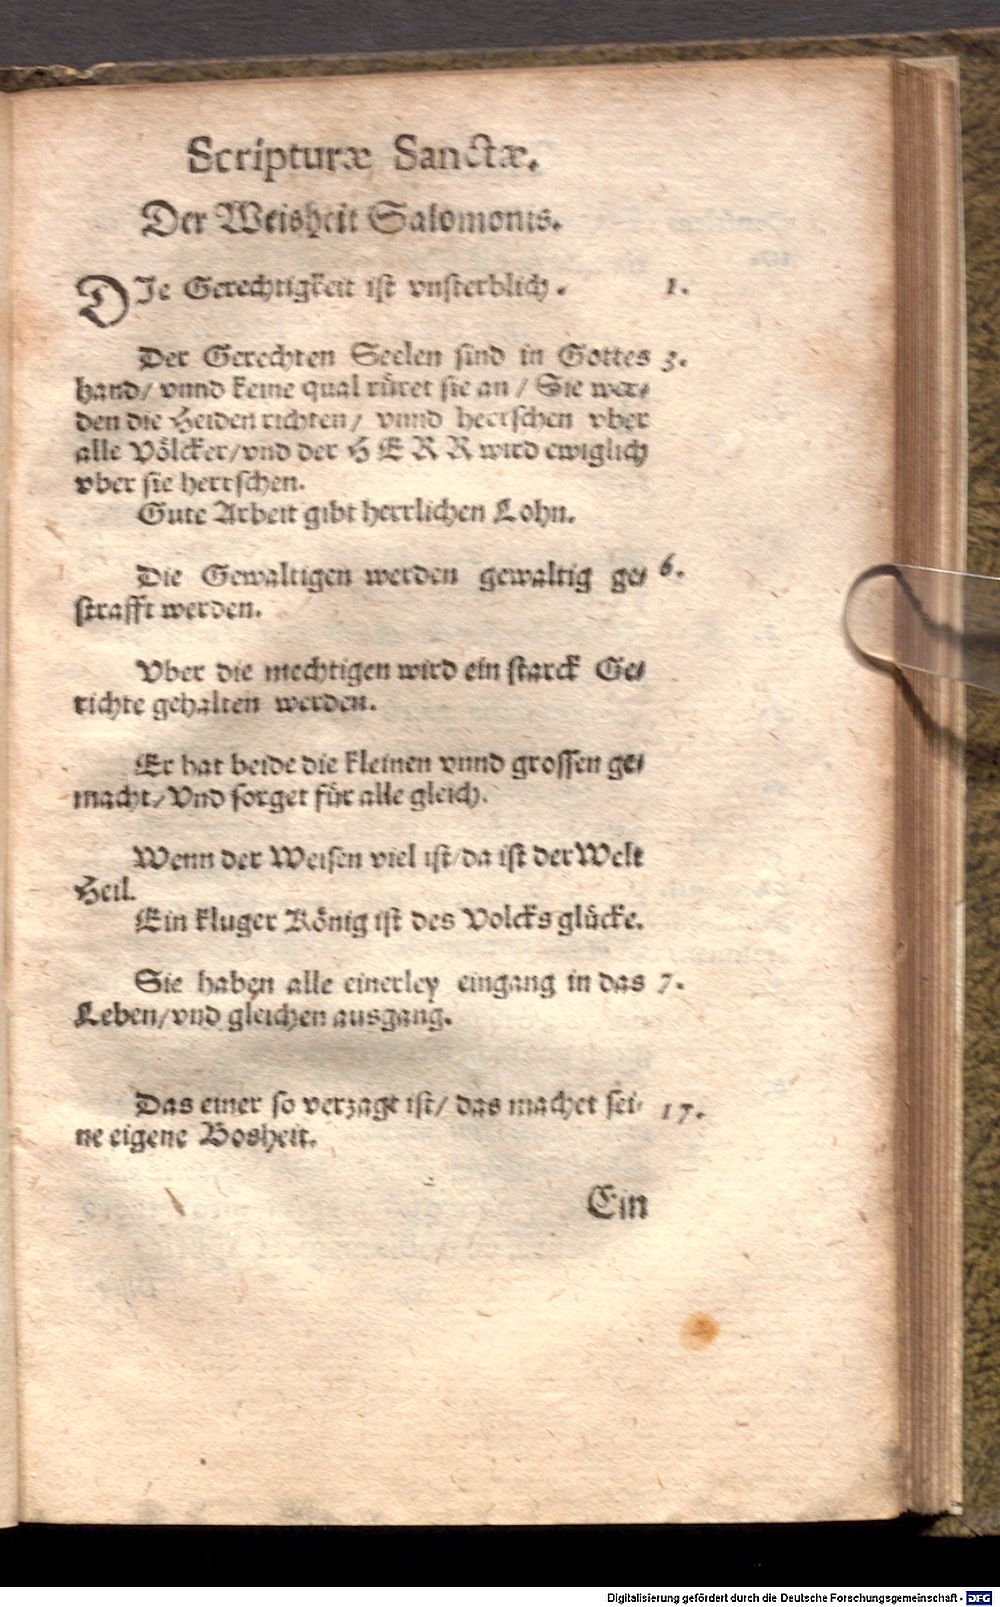 Scripturæ Sanctæ.
Der Weisheit Salomonis.
DIe Gerechtigkeit ist vnsterblich. 1.
Der Gerechten Seelen sind in Gottes 3.
hand/ vnnd keine qual rüret sie an/ Sie wer-
den die Heiden richten/ vnnd herrschen vber
alle Völcker/vnd der HERR wird ewiglich
vber sie herrschen.
Gute Arbeit gibt herrlichen Lohn.
Die Gewaltigen werden gewaltig ge- 6.
strafft werden.
Vber die mechtigen wird ein starck Ge-
richte gehalten werden.
Er hat beide die kleinen vnnd grossen ge-
macht/ Vnd sorget für alle gleich.
Wenn der Weisen viel ist/da ist der Welt
Heil.
Ein kluger König ist des Volcks glücke.
Sie haben alle einerley eingang in das 7.
Leben/vnd gleichen ausgang.
Das einer so verzagt ist/ das machet sei- 17.
ne eigene Bosheit.
Ein
Digitalisierung gefördert durch die Deutsche Forschungsgemeinschaft - DFG